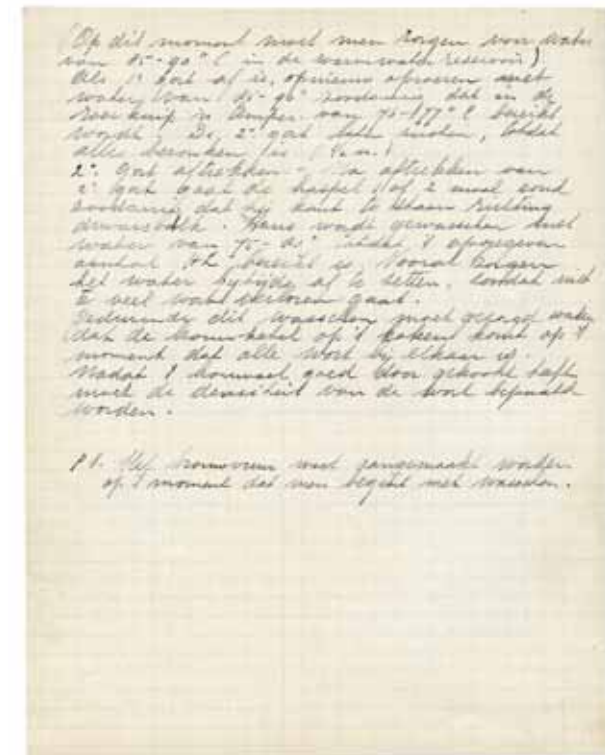 (Op dit moment moet men zorgen voor water
van 85-90° (in de warmwater reservoir)
Als 1e gat af is, opnieuw oproeren met
water van 85-90° zoodanig dat in de
roerkuip 'n temper. van 75-77° C bereikt
wordt. De 2e gat laten rusten, totdat
alle bezonken is
2e gat aftrekken - Na aftrekken van
2e gat gaat de haspel 1 of 2 maal rond
zoodanig dat hij komt te staan richting
dwarsbalk. Hans wordt gewasschen met
water van 75- totdat 't opgegeven
aantal bereikt is. Vooral zorgen
het water bijtijds af te zetten, zoodat niet
te veel wort verloren gaat.
Gedurende dit wasschen moet gezorgd worden
dat de brouwketel op 't koken komt op 't
moment dat alle wort bij elkaar is.
Nadat 't brouwsel goed door gekookt heeft
moet de densiteit van de wort bepaald
worden.
P.S. Het brouwvuur moet aangemaakt worden
op 't moment dat men begint met wasschen.